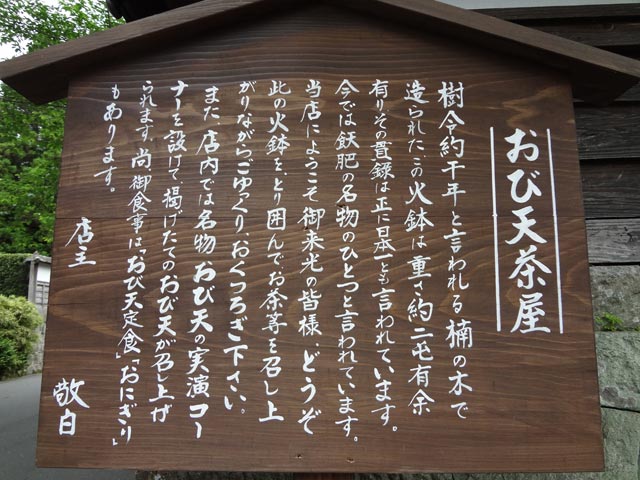 おび天茶屋
樹令約千年と言われる楠の木で
造られた、この火鉢は重さ約二屯有余
有りその貫録は正に日本一とも言われています。
今では飫肥の名物のひとつと言われています。
当店にようこそ御来光の皆様、どうぞ
此の火鉢を、とり囲んでお茶等を召し上
がりながらごゆっくりおくつろぎ下さい。
また、店内では名物、おび天の実演コー
ナーを設けて、揚げたてのおび天が召し上が
られます。尚御食事は、「おび天定食」「おにぎり」
もあります。
店主
敬白